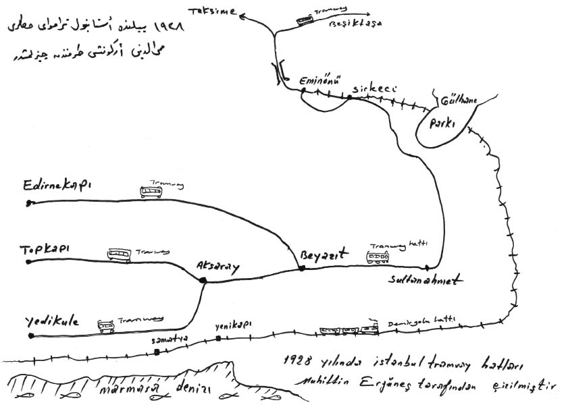 ١٩٢٨ ييلنده استانبول تراموای خطلری
محی الدین ارکونشی طرفندن چیزلمشدر
Taksime
Tramway
Beşiktaşa
Eminönü
Sirkeci
Gülhane
Parkı
Edirnekapı
Tramway
Topkapı
Tramway
Aksaray
Beyazıt
Tramvay hattı
Sultanahmet
Yedikule
Tramway
samatya
yenikapı
Demiryolu hattı
marmara denizi
1928 yılında istanbul tramvay hatları
Muhittin Ergüneş tarafından çizilmiştir